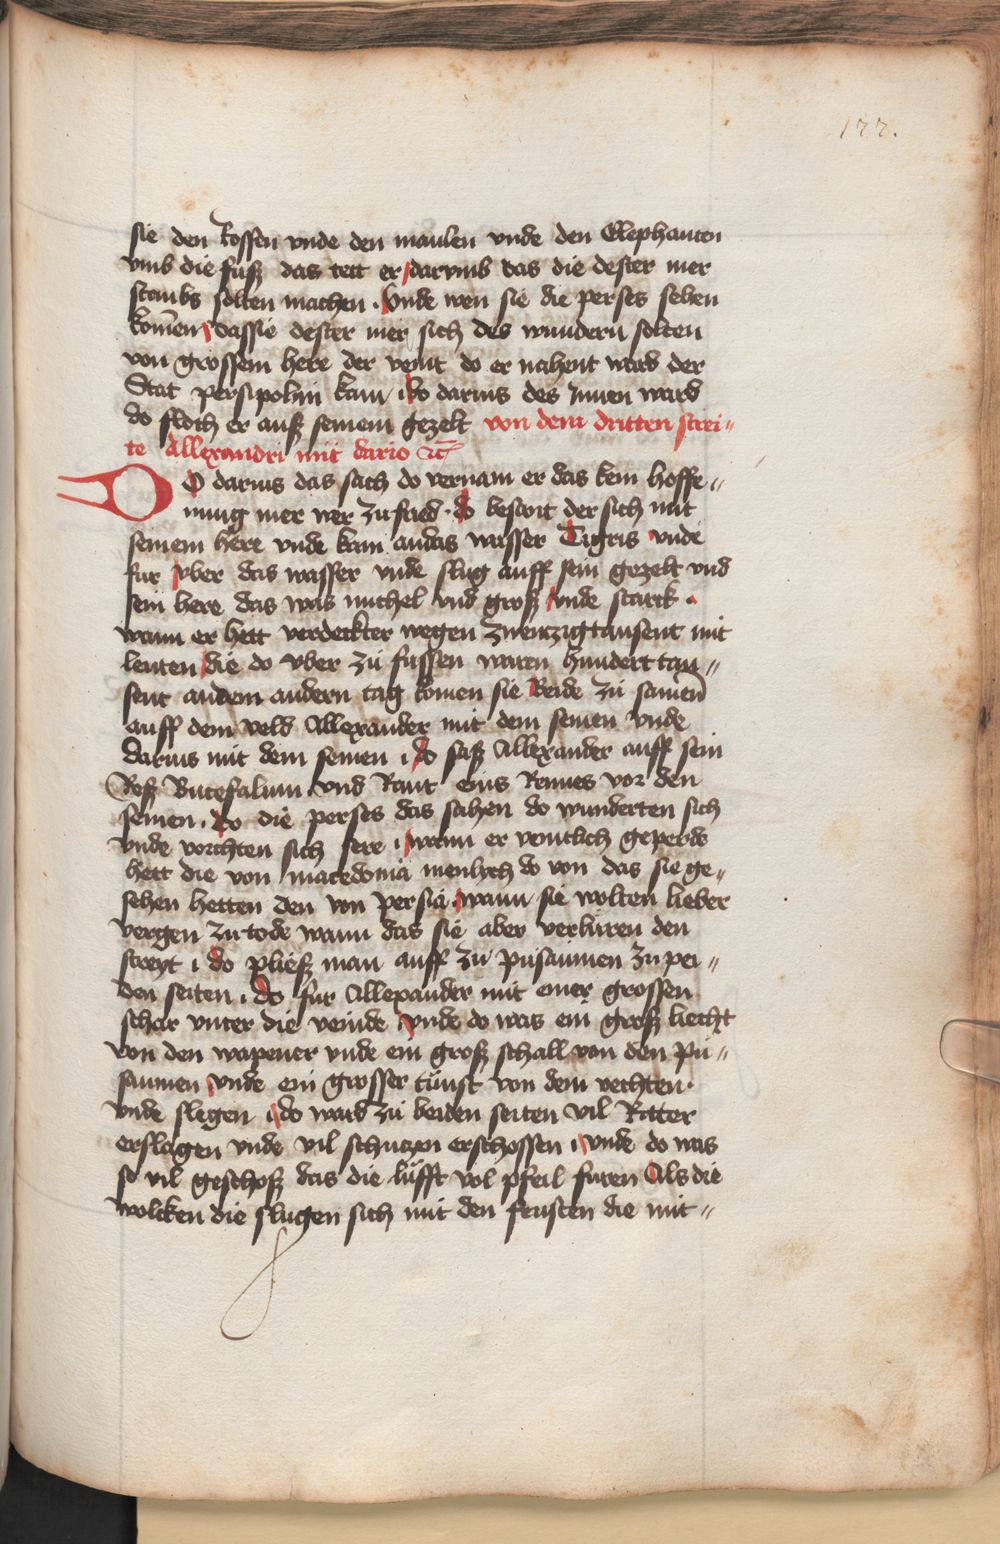 177.
sie den Rossen vnde den maulen vnde den Elephanten
vmb die fusz das tett er darvmb das die dester mer
staubs solten machen . Vnde wen sie die perses sehen
komen dassie dester mer sich des wundern solten
von grossem here der veint do er nahent ward der
Stat persipolim kam do darius des Innen ward
do floch er ausz seinem gezelt von dem dritten strei„
te Allexandri mit dario ꝛc̃
DO darius das sach do vernam er das kein hoffe„
nung mer wer zu frid . do besort der sich mit
seinem here vnde kam andas wasser Tigris vnde
fur vber das wasser vnde slug auff sein gezelt vnd
sein here das was michel vnd grosz vnde starck .
wann er hett verdeckter wegen zwenzigtausent mit
leuten die do vber zu fussen waren hundert tau„
sent andem andern tag komen sie Beide zu samen
auff dem veld Allexander mit dem seinen vnde
darius mit dem seinen do sasz Allexander auff sein
Rosz Bucefalum vnd Rant eins Rennes vor den
seinen . do die perses das sahen do wunderten sich
vnde vorchten sich sere wann er veintlich geperde
hett die von macedonia menlych do von das sie ge„
sehen hetten den von persia wann sie wolten lieber
vergen zu tode wann das sie aber verluren den
streyt do pliesz man auff zu pusaumen zu pei„
den seiten . do fur Allexander mit einer grossen
schar vnter die veinde vnde do was ein grosz liecht
von den wapener vnde ein grosz schall von den pu„
saumen vnde ein grosser tunst von dem vechten .
vnde slegen do ward zu beiden seiten vil Ritter
erslagen vnde vil schutzen erschossen vnde do was
so vil geschosz das die lufft vol pfeil furen Als die
wolcken die slugen sich mit den feusten die mit„